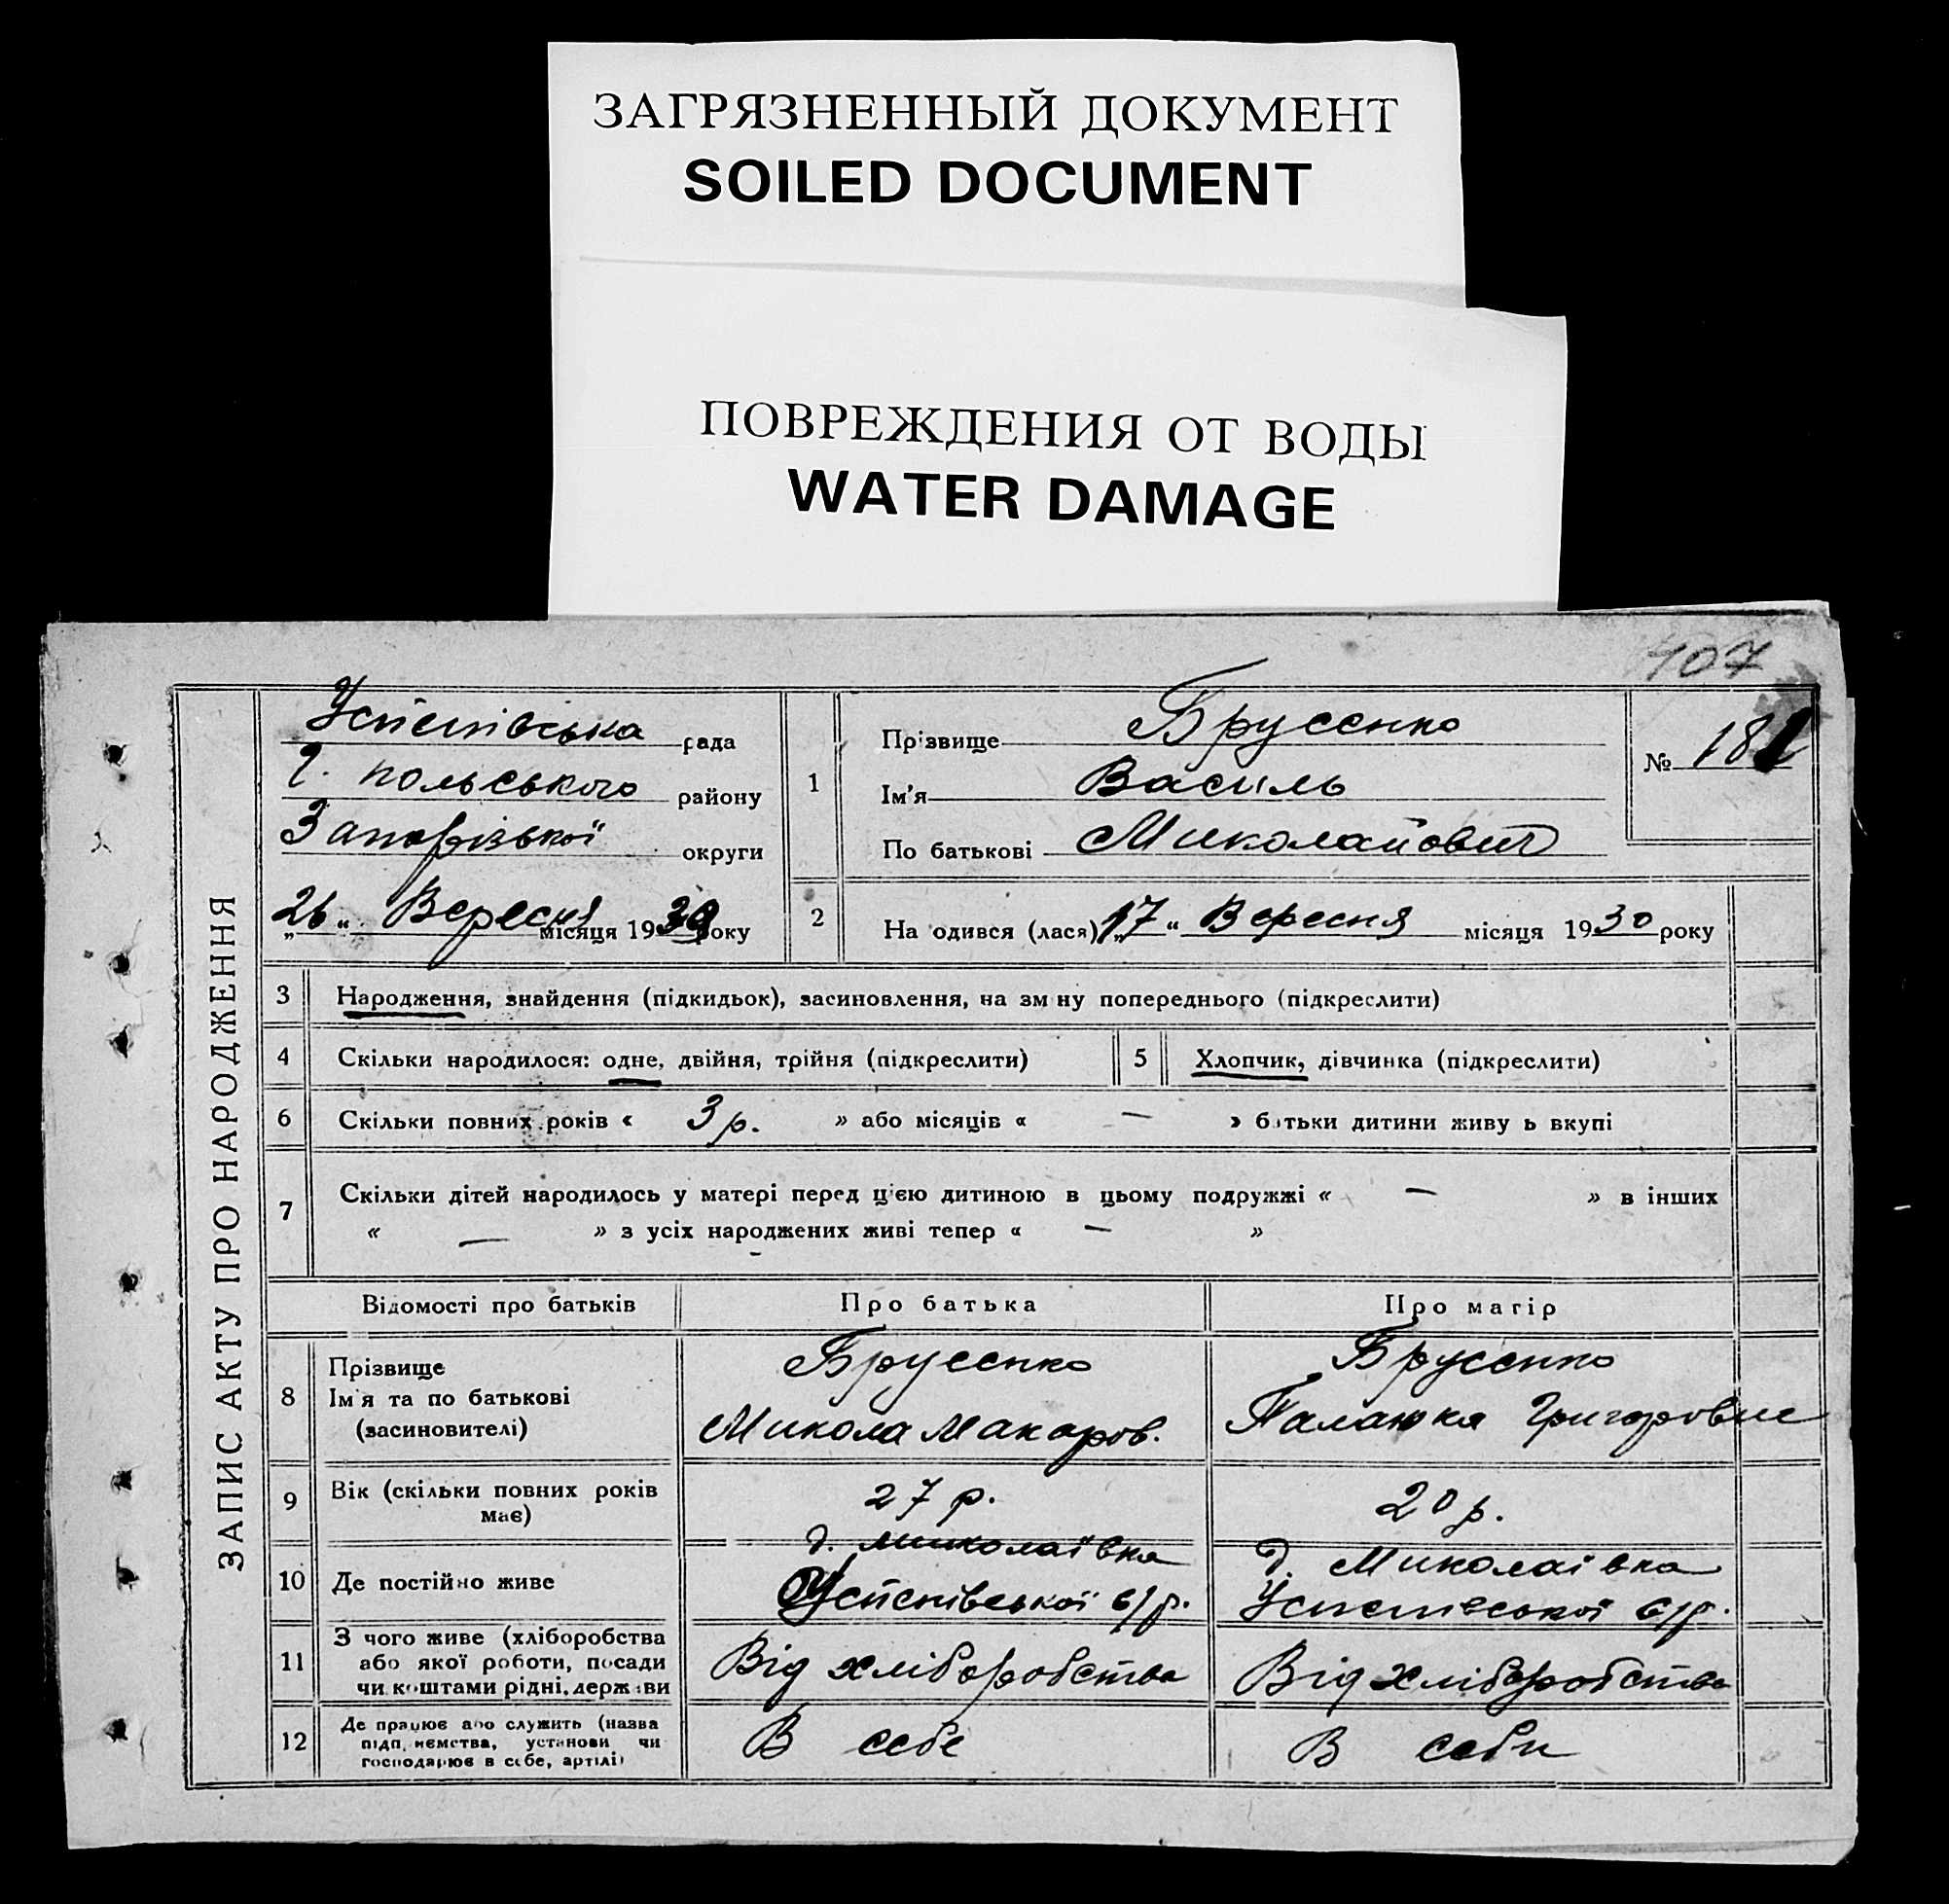 ЗАГРЯЗНЕННЫЙ ДОКУМЕНТ
SOILED DOCUMENT
ПОВРЕЖДЕНИЯ ОТ ВОДЫ
WATER DAMAGE
107
ЗАПИС АКТУ ПРО НАРОДЖЕННЯ
Успенівська рада
Г. польського району
Запорізької округи
„26“ Вересня місяця 1930 року
1
Прізвище Брусенко
Ім'я Василь
По батькові Миколайович
№ 181
2 На одився (лася) „17“ Вересня місяця 1930 року
3 Народження, знайдення (підкидьок), засиновлення, на зміну попереднього (підкреслити)
4 Скільки народилося: одне, двійня, трійня (підкреслити)
5 Хлопчик, дівчинка (підкреслити)
6 Скільки повних років « 3 р. » або місяців « — » батьки дитини живу ь вкупі
7 Скільки дітей народилось у матері перед цією дитиною в цьому подружжі « — » в інших
« — » з усіх народжених живі тепер « — »
Відомості про батьків Про батька Про матір
8 Прізвище
Ім'я та по батькові
(засиновителі)
Брусенко
Микола Макаров.
Брусенко
Палажка Григоровне
9 Вік (скільки повних років
має)
27 р.
20 р.
10 Де постійно живе
д. Миколаївка
Успенівської с/р.
д. Миколаївка
Успенівської с/р.
11 З чого живе (хліборобства
або якої роботи, посади
чи коштами рідні, держави
Від хліборобства
Від хліборобства
12 Де працює або служить (назва
підп.иємства, установи чи
господарює в себе, артілі)
В себе
В себи